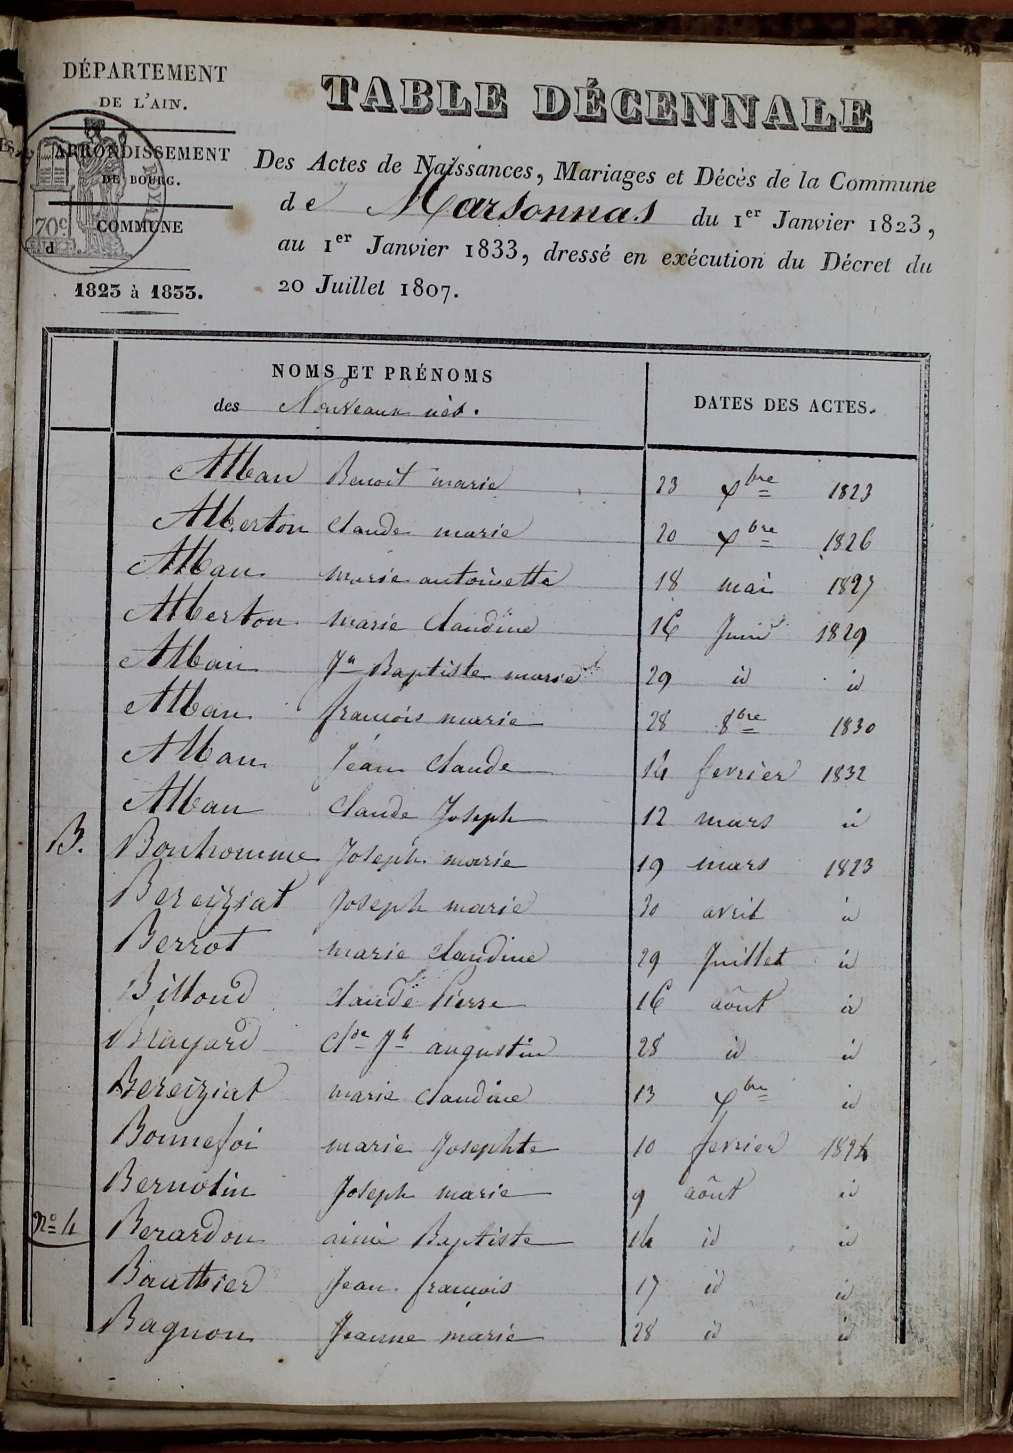 DÉPARTEMENT
DE L'AIN.
ARRONDISSEMENT
DE BOURG.
COMMUNE
70c
d
1823 à 1833.
TABLE DÉCENNALE
Des Actes de Naissances, Mariages et Décès de la Commune
de Marsonnas du 1er Janvier 1823,
au 1er Janvier 1833, dressé en exécution du Décret du
20 Juillet 1807.
NOMS ET PRÉNOMS
des Nouveaux nés.
DATES DES ACTES.
Alban Benoit marie 23 Xbre 1823
Alberton Claude marie 20 Xbre 1826
Alban marie antoinette 18 mai 1827
Alberton marie Claudine 16 Juin 1829
Alban Jn Baptiste marie 29 id id
Alban francois marie 28 8bre 1830
Alban Jean Claude 14 fevrier 1832
Alban Claude Joseph 12 mars id
B. Bonhomme Joseph marie 19 mars 1823
Bereiziat Joseph marie 30 avril id
Berrot marie Claudine 29 Juillet id
Billoud Claude Pierre 16 août id
Brayard Cde Jh augustin 28 id id
Bereiziat marie Claudine 13 Xbre id
Bonnefoi marie Josephte 10 fevrier 1824
Bernolin Joseph marie 9 août id
No 4 Berardon aimé Baptiste 14 id id
Bauthier Jean francois 17 id id
Bagnon Jeanne marie 28 id id